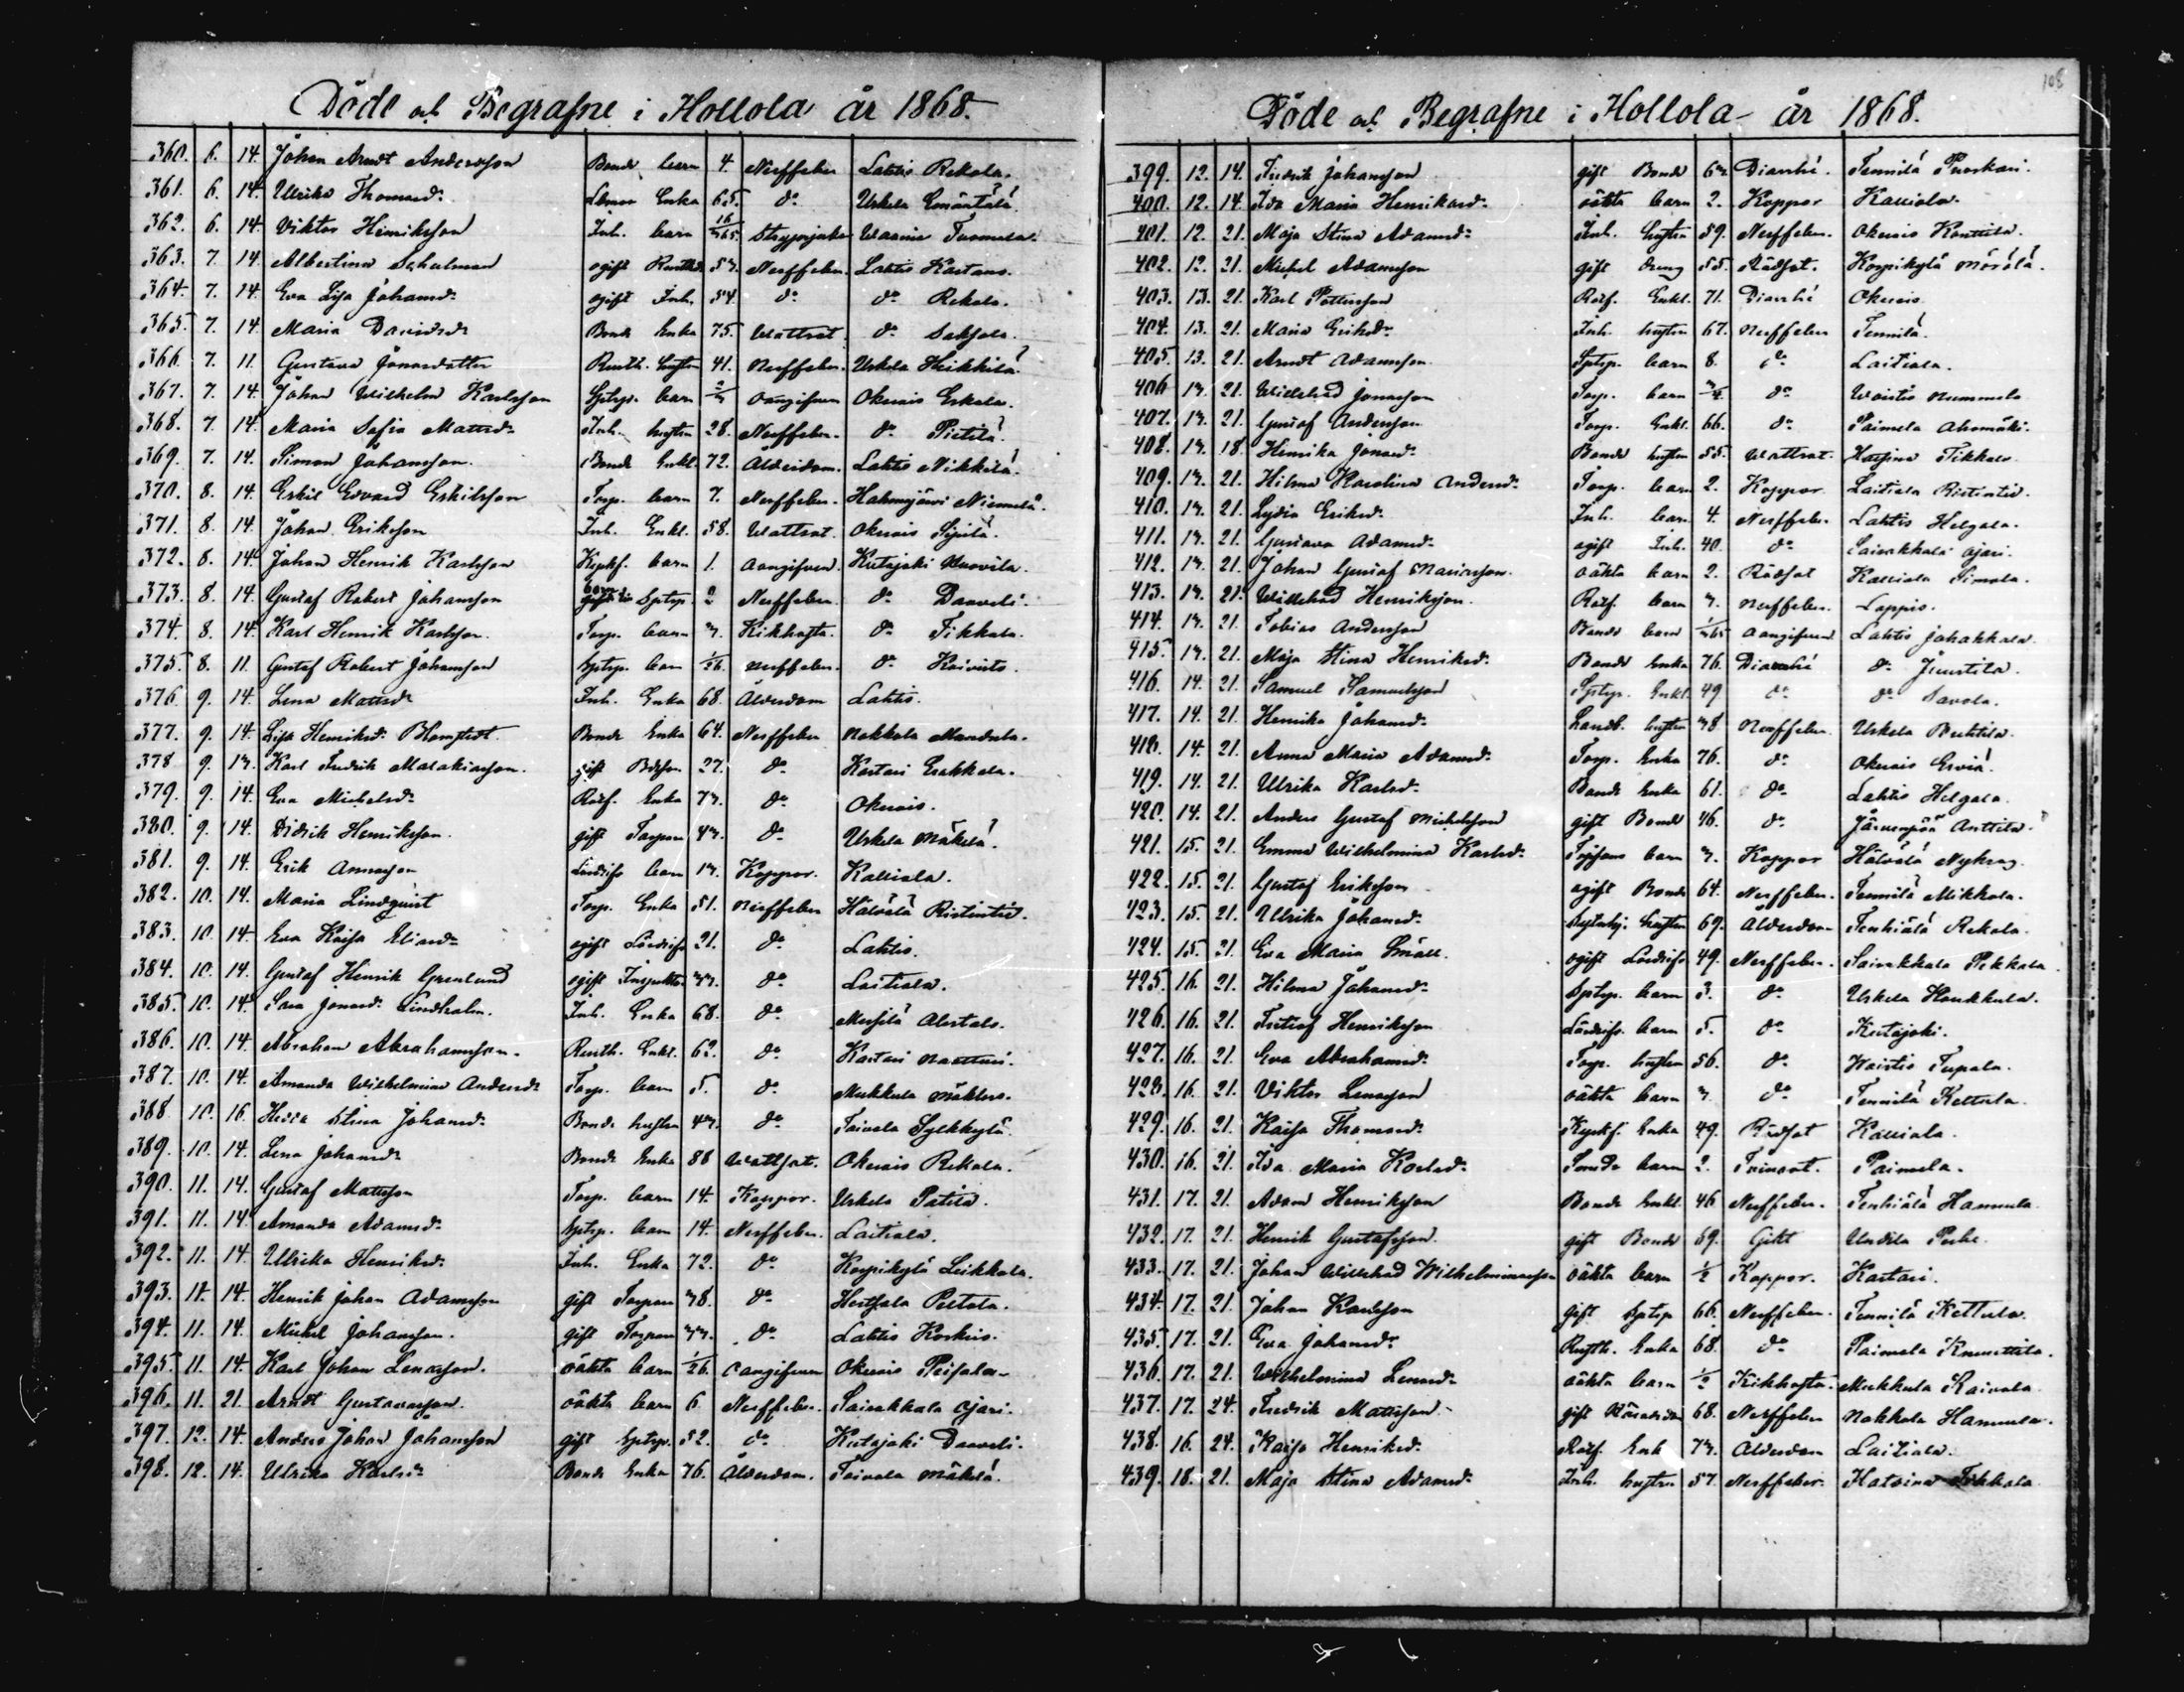 Döde och Begrafne i Hollola år 1868.
360. 6. 14. Johan Arndt Andersson Bonde barn 4. Nerffeber Lahtis Rekola.
361. 6. 14. Ulrika Thomasd:r Enka 65. d:o Urkola
362. 6. 14. Viktor Henriksson Inh. barn Strypsjuka Tuomola.
363. 7. 14. Albertina Schulman ogift Nerffeber. Lahtis Kartano.
364. 7. 14. Eva Lisa Johansd:r ogift Inh. 54. d:o d:o Rekola.
365. 7. 14. Maria Davidsd:r Bonde Enka 75. Wattsot d:o
366. 7. 11. Gustava Jonasdotter hustru 41. Nerffeber. Urkola Heikkilä.
367. 7. 14. Johan Wilhelm Karlsson Sptrp. barn oangifven Okerois Erkola.
368. 7. 14. Maria Sofia Mattsd:r Inh. hustru 28. Nerffeber. d:o Pietilä.
369. 7. 14. Simon Johansson. Bonde Enkl. 72. Ålderdom. Lahtis Nikkilä.
370. 8. 14. Eskil Edvard Eskilsson Torp. barn 7. Nerffeber. Hahmajärvi Niemelä.
371. 8. 14. Johan Eriksson Inh. Enkl. 58. Wattsot. Okerois Sipilä.
372. 8. 14. Johan Henrik Karlsson barn 1. oangifven. Kutajoki Uusvila.
373. 8. 14. Gustaf Robert Johansson Sptrp. Nerffeber. d:o Daaveli.
374. 8. 14. Karl Henrik Karlsson. Torp. barn 3. Kikhosta. d:o Tikkala.
375. 8. 11. Gustaf Robert Johansson Sptrp. barn 1/26. nerffeber. d:o Koivisto.
376. 9. 14. Lena Mattsd:r Inh. Enka 68. Ålderdom Lahtis.
377. 9. 14. Lisa Henriksd:r Blomstedt. Bonde Enka 64. Nerffeber Nokkola Mandola.
378. 9. 13. Karl Fredrik Malakiasson. gift 27. d:o Kastari Erakkala.
379. 9. 14. Eva Michelsd:r Rotf. Enka 73. d:o Okerois.
380. 9. 14. Didrik Henriksson. gift Torpare 43. d:o Urkola Mäkelä.
381. 9. 14. Erik Annasson barn 13. Koppor. Kalliola.
382. 10. 14. Maria Lindqvist Torp. Enka 51. Nerffeber Hälvälä Ristintie.
383. 10. 14. Eva Kaisa Eliasd:r ogift 21. d:o Lahtis.
384. 10. 14. Gustaf Henrik Grenlund ogift Inspektor 33. d:o Laitiala.
385. 10. 14. Sara Jonasd: Lindholm. Inh. Enka 68. d:o Messilä Alestalo.
386. 10. 14. Abraham Abrahamsson. Enkl. 62. d:o Kastari
387. 10. 14. Amanda Wilhelmina Andersd:r Torp. barn 5. d:o Mukkula
388. 10. 16. Hedda Stina Johansd:r Bonde hustru 43. d:o Toivola Sylkkylä.
389. 10. 14. Lena Johansd:r Bonde Enka 88 Wattsot. Okerois Rekola.
390. 11. 14. Gustaf Mattsson Torp. barn 14. Koppor. Urkola
391. 11. 14. Amanda Adamsd:r Sptrp. barn 14. Nerffeber. Laitiala.
392. 11. 14. Ullrika Henriksd:r Inh. Enka 72. d:o Korpikylä Leikkola.
393. 11. 14. Henrik Johan Adamsson gift Torpare 38. d:o Hertsala Peltola.
394. 11. 14. Mickel Johansson. gift Torpare 33. d:o Lahtis Koskis.
395. 11. 14. Karl Johan Lenasson. oäkta barn 1/26. oangifven Okerois
396. 11. 21. Arndt Gustavasson. oäkta barn 6. Nerffeber. Sairakkala Ojari.
397. 12. 14. Anders Johan Johansson gift Sptrp. 52. d:o Kutajoki Daaveli.
398. 12. 14. Ulrika Karlsd:r Bonde Enka 76. Ålderdom. Toivola Mäkelä.
108
Döde och Begrafne i Hollola år 1868.
399. 12. 14. Fredrik Johansson gift Bonde 63. Diarrhé. Tennilä Puoskari.
400. 12. 14. Ida Maria Henriksd:r oäkta barn 2. Koppor Kalliola.
401. 12. 21. Maja Stina Adamsd:r Inh. hustru 59. Nerffeber. Okerois Konttila.
402. 12. 21. Michel Adamsson gift dräng 55. Rödsot. Korpikylä
403. 13. 21. Karl Pettersson Rotf. Enkl. 71. Diarrhé Okerois
404. 13. 21. Maria Eriksd:r Inh. hustru 67. Nerffeber Tennilä.
405. 13. 21. Arndt Adamsson Sptrp. barn 8. d:o Laitiala.
406. 13. 21. Willehad Jonasson Torp. barn 3/4 d:o Nummela
407. 13. 21. Gustaf Andersson Torp. Enkl. 66. d:o Paimela Ahomäki.
408. 13. 18. Henrika Jonasd:r Bonde hustru 55. Wattsot. Hatsina Tikkala
409. 13. 21. Hilma Karolina Andersd:r Torp. barn 2. Koppor Laitiala Ristintie.
410. 13. 21. Lydia Eriksd:r Inh. barn 4. Nerffeber. Lahtis Helgala.
411. 13. 21. Gustava Adamsd:r ogift Inh. 40. d:o Sairakkala Ojari.
412. 13. 21. Johan Gustaf Mariasson. oäkta barn 2. Rödsot Kalliola Simola.
413. 13. 21. Willehad Henriksson. Rotf. barn 3. Nerffeber. Loppis.
414. 13. 21. Tobias Andersson Bonde barn oangifven Lahtis Johakkala.
415. 13. 21. Maja Stina Henriksd:r Bonde Enka 76. Diarrhé d:o Junttila.
416. 14. 21. Samuel Samuelsson Sptrp. Enkl. 49 d:o d:o Savola.
417. 14. 21. Henrika Johansd:r Landb. hustru 38 Nerffeber. Urkola
418. 14. 21. Anna Maria Adamsd:r Torp. Enka 76. d:o Okerois
419. 14. 21. Ulrika Karlsd:r Bonde Enka 61. d:o Lahtis Helgala.
420. 14. 21. Anders Gustaf Michelsson gift Bonde 46. d:o Järvenpää Anttila.
421. 15. 21. Emma Wilhelmina Karlsd:r barn 3. Koppor Hälvälä
422. 15. 21. Gustaf Eriksson ogift Bonde 64. Nerffeber. Tennilä Mikkola.
423. 15. 21. Ullrika Johansd:r hustru 69. Ålderdom Tenhiälä Rekola.
424. 15. 21. Eva Maria Småll. ogift 49. Nerffeber. Sairakkala Pekkala.
425. 16. 21. Hilma Johansd:r Sptrp. barn 3. d:o Urkola Houkkula.
426. 16. 21. Fritiof Henriksson barn 5. d:o Kutajoki.
427. 16. 21. Eva Abrahamsd:r Torp. hustru 56. d:o Tupala.
428. 16. 21. Viktor Lenasson oäkta barn 3. d:o Tennilä Kettula.
429. 16. 21. Kaisa Thomasd:r Enka 49. Rödsot Kalliola.
430. 16. 21. Ida Maria Karlsd:r barn 2. Paimela.
431. 17. 21. Adam Henriksson Bonde Enkl. 46 Nerffeber. Tenhiälä Hannula
432. 17. 21. Henrik Gustafsson. gift Bonde 69. Gikt
433. 17. 21. Johan Willehad Wilhelminasson oäkta barn 1/2 Koppor. Kastari.
434. 17. 21. Johan Karlsson gift Sptrp 66. Nerffeber. Tennilä Kettula.
435. 17. 21. Eva Johansd:r Enka 68. d:o Paimela Knuuttila.
436. 17. 21. Wilhelmina Lenasd:r oäkta barn Kikhosta. Mukkula Koivula
437. 17. 24. Fredrik Mattsson. gift 68. Nerffeber Nokkola Hannula.
438. 16. 24. Kaisa Henriksd:r Rotf. Enk 73. Ålderdom Laitiala.
439. 18. 21. Maja Stina Adamsd:r Inh. hustru 57 Nerffeber. Hatsina Tikkala